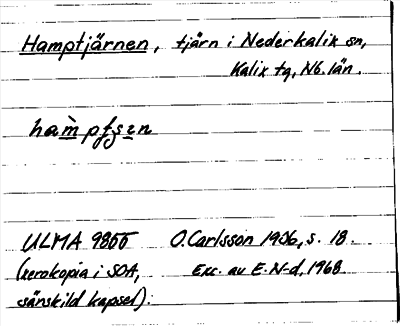 Hamptjärnen, tjärn i Nederkalix sn,
Kalix tg, Nb. län.
ULMA 9855 O. Carlsson 1906, s. 18.
(xerokopia i SOA, Exc. av E. N-d, 1968
särskild kapsel).